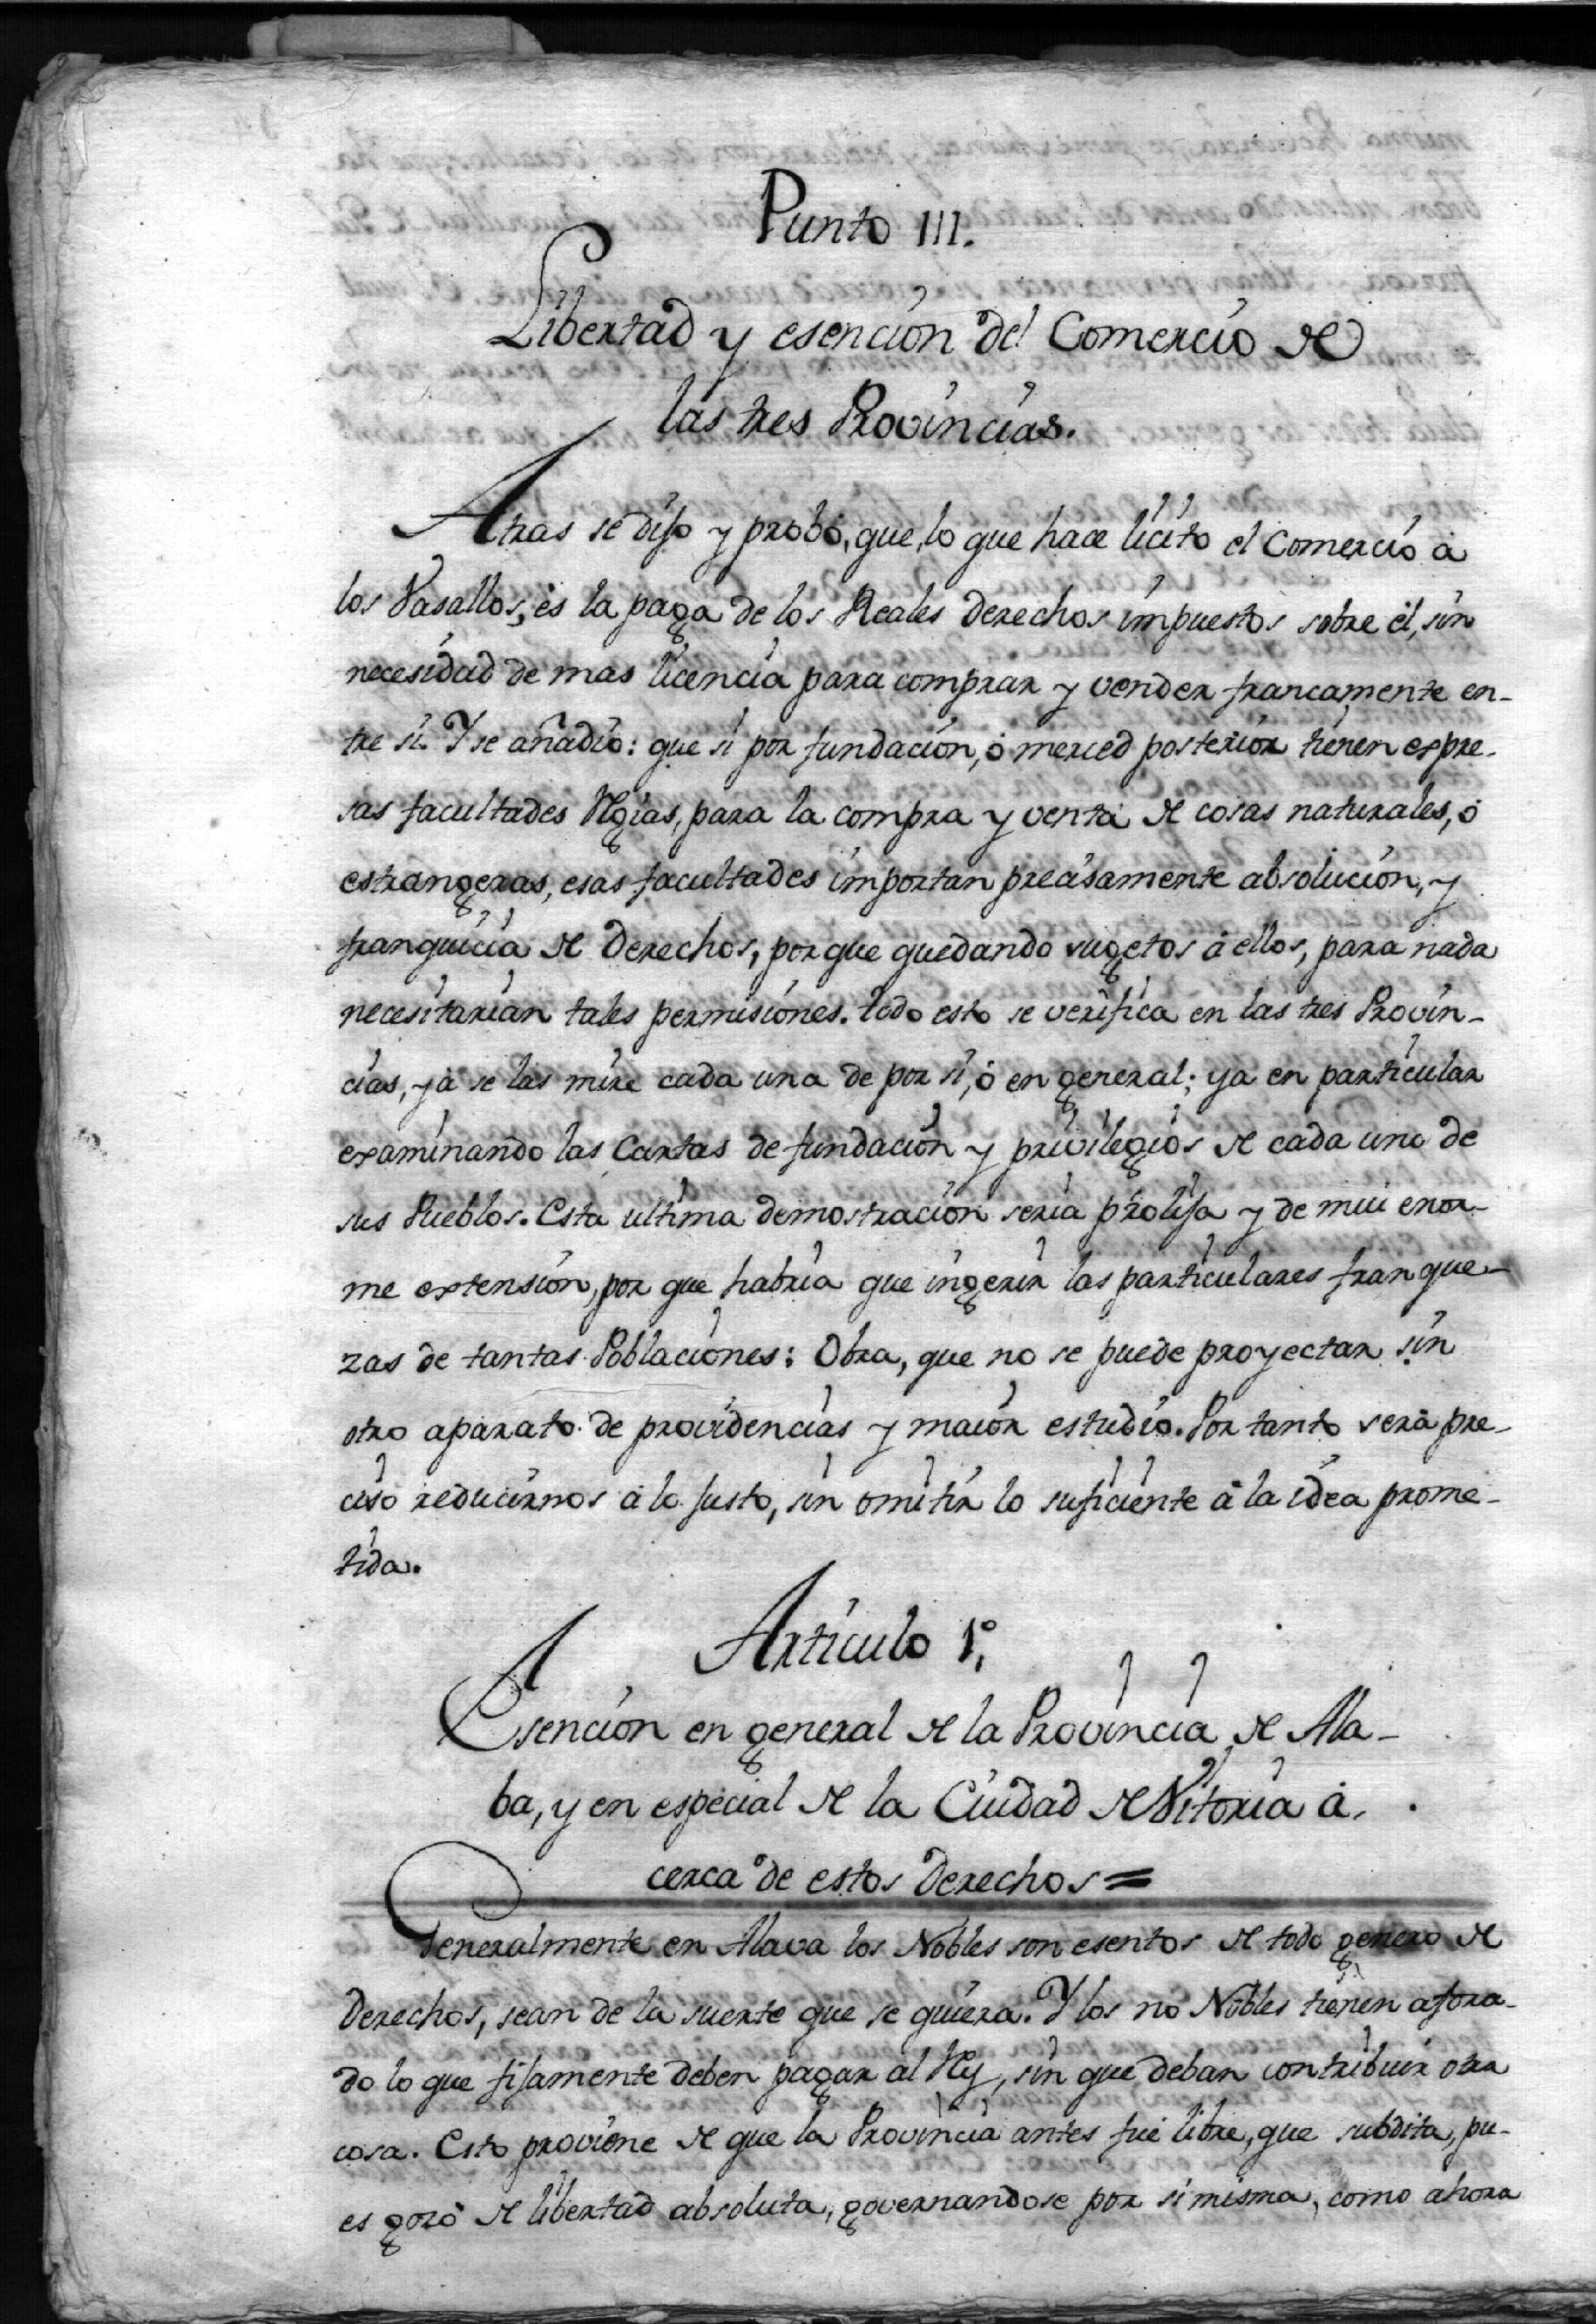 Punto III.
Libertad y esención del Comercio de
las tres Provincias.
Atras se dijo y probó, que, lo que hace licito el Comercio á
los Vasallos, es la paga de los Reales derechos impuestos sobre él, sin
necesidad de mas licencia para comprar y vender francamente en-
tre si. Y se añadio: que si por fundación, ó merced posterior tienen expre-
sas facultades Rgias, para la compra y venta de cosas naturales, ó
estrangeras, esas facultades importan precisamente absolucion, y
franquicia de Derechos, porque quedando sugetos á ellos, para nada
necesitarían tales permisiones. todo esto se verifica en las tres Provin-
cias, ya se las mire cada una de por si, ó en general; ya en particular
examinando las Cartas de fundación y privilegios de cada uno de
sus Pueblos. Esta ultima demostración seria prolija y de mui enor-
me extensión, por que habria que ingerir las particulares franque-
zas de tantas Poblaciones: Obra, que no se puede proyectar sin
otro aparato de providencias y maior estudio. Por tanto será pre-
ciso reducirnos á lo justo, sin omitir lo suficiente á la idea prome-
tida.
Artículo 1º
Esención en general de la Provincia de Ala-
ba, y en especial de la Ciudad de Vitoria á-
cerca de estos Derechos=
Generalmente en Alava los Nobles son esentos de todo genero de
Derechos, sean de la suerte que se quiera. Y los no Nobles tienen afora-
do lo que fijamente deben pagar al Rey, sin que deban contribuir otra
cosa. Esto proviene de que la Provincia antes fue libre, que subdita, pu-
es gozó de libertad absoluta, governandose por si misma, como ahora